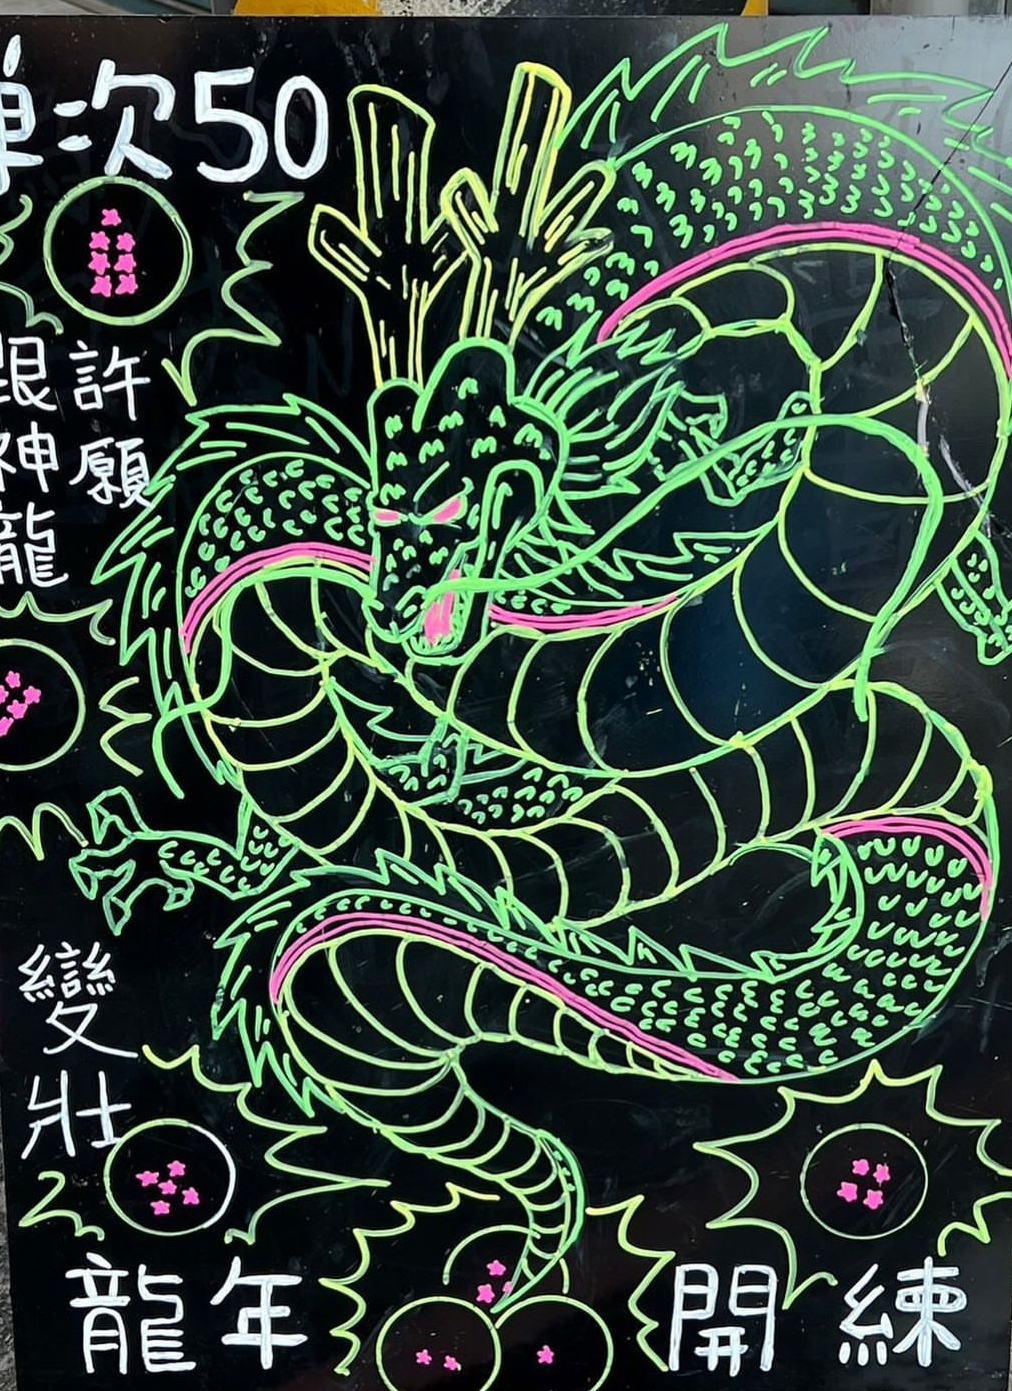 單次50
許願
跟神龍
變壯
龍年 開練